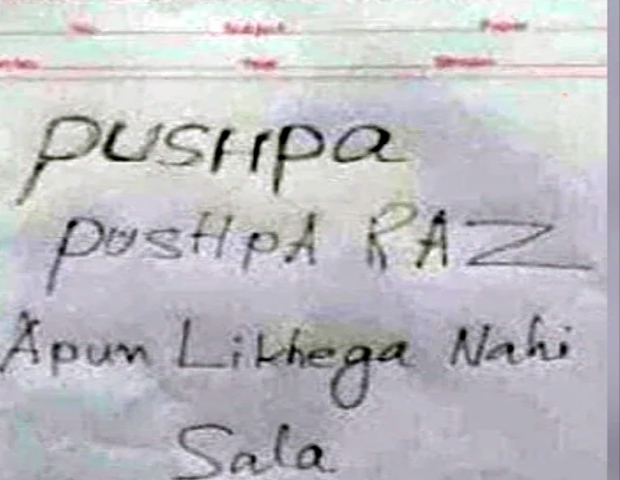 No. Subject Paper
Year Division
pUSHpa
pUSHpA RAZ
Apun Likhega Nahi
Sala